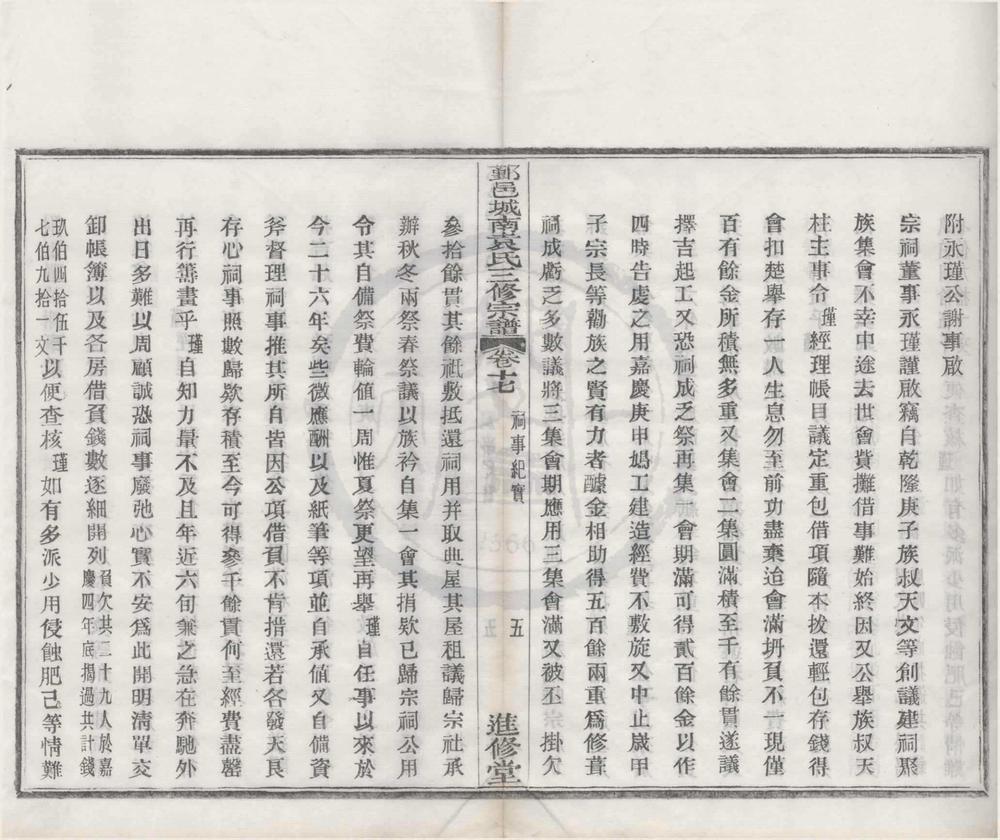 附永瑾公謝事啟
宗祠董事永瑾謹啟竊自乾隆庚子族叔天文等創議建祠聚
族集會不幸中途去世會貲攤借事難始終因又公舉族叔天
柱主事令瑾經理帳目議定重包借項隨本拨還輕包存錢得
會扣楚舉存一人生息勿至前功盡棄迨會滿坍負不一現僅
百有餘金所積無多重又集會二集圓滿積至千有餘貫遂議
擇吉起工又恐祠成乏祭再集一會期滿可得貳百餘金以作
四時告虔之用嘉慶庚申鳩工建造經費不敷旋又中止嵗甲
子宗長等勸族之賢有力者醵金相助得五百餘兩重為修葺
祠成虧乏多數議將三集會期應用三集會滿又被丕掛欠
鄞邑城南袁氏三修宗譜
卷十七
祠事紀實
五
進修堂
叅拾餘貫其餘祗敷抵還祠用并取典屋其屋租議歸宗社承
辦秋冬兩祭春祭議以族衿自集一會其捐欵已歸宗祠公用
令其自備祭費輪值一周惟夏祭更望再舉瑾自任事以來於
今二十六年矣些微應酬以及紙筆等項並自承值又自備資
斧督理祠事推其所自皆因公項借負不肯措還若各發天良
存心祠事照數歸欵存積至今可得叅千餘貫何至經費盡罄
再行籌畫乎瑾自知力量不及且年近六旬兼之急在奔馳外
出日多難以周顧誠恐祠事廢弛心實不安為此開明清單交
卸帳簿以及各房借負錢數逐細開列負欠共二十九人於嘉慶四年底揭過共計錢
玖伯四拾伍千七伯九拾一文以便查核瑾如有多派少用侵蝕肥己等情難